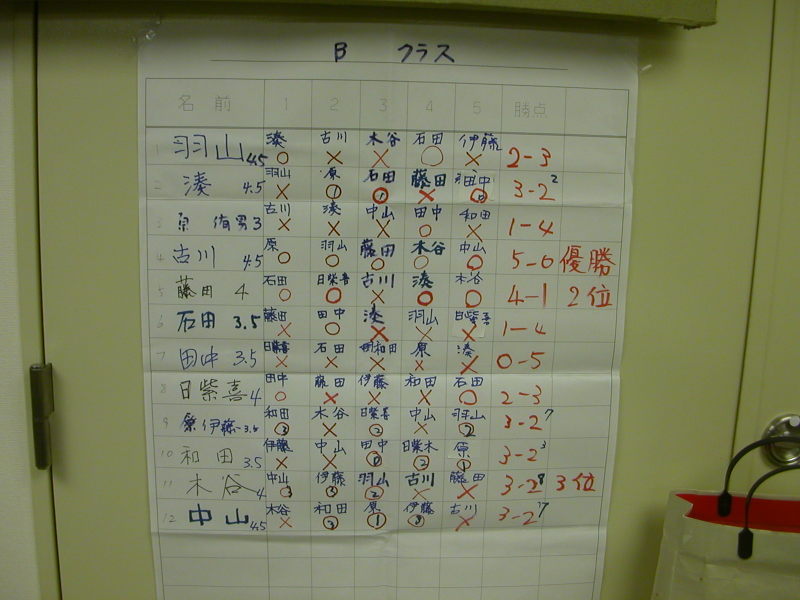 B クラス
名前 1 2 3 4 5 勝点
1 羽山 4.5 湊 ○ 古川 × 木谷 × 石田 ○ 伊藤 × 2-3
2 湊 4.5 羽山 × 原 ① 石田 ① 藤田 × 田中 3-2 2
3 原 侑男 3 古川 × 湊 × 中山 × 田中 ○ 和田 × 1-4
4 古川 4.5 原 ○ 羽山 ○ 藤田 ○ 木谷 ○ 中山 ○ 5-0 優勝
5 藤田 4 石田 ○ 日紫喜 ○ 古川 × 湊 ○ 木谷 ○ 4-1 2位
6 石田 3.5 藤田 × 田中 ○ 湊 × 羽山 × 日紫喜 × 1-4
7 田中 3.5 日紫喜 × 石田 × 和田 × 原 × 湊 × 0-5
8 日紫喜 4 田中 ○ 藤田 × 伊藤 × 和田 × 石田 ○ 2-3
9 伊藤 3.5 和田 ③ 木谷 × 日紫喜 ② 中山 × 羽山 ② 3-2 7
10 和田 3.5 伊藤 × 中山 × 田中 ⓪ 日紫木 ② 原 ① 3-2 3
11 木谷 4 中山 ③ 伊藤 ③ 羽山 ② 古川 × 藤田 × 3-2 8 3位
12 中山 4.5 木谷 × 和田 ③ 原 ① 伊藤 ③ 古川 × 3-2 7